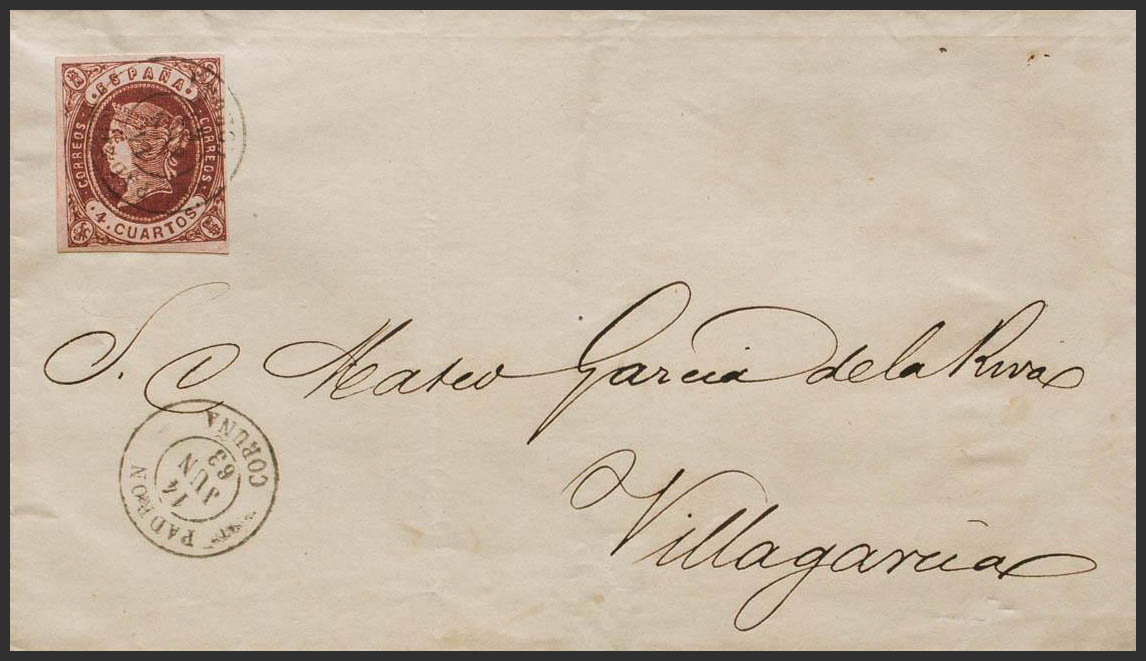 ESPAÑA
CORREOS
CORREOS
4. CUARTOS
S. D Mateo Garcia de la Riva
Villagarcia
PADRON
14
JUN
63
CORUÑA